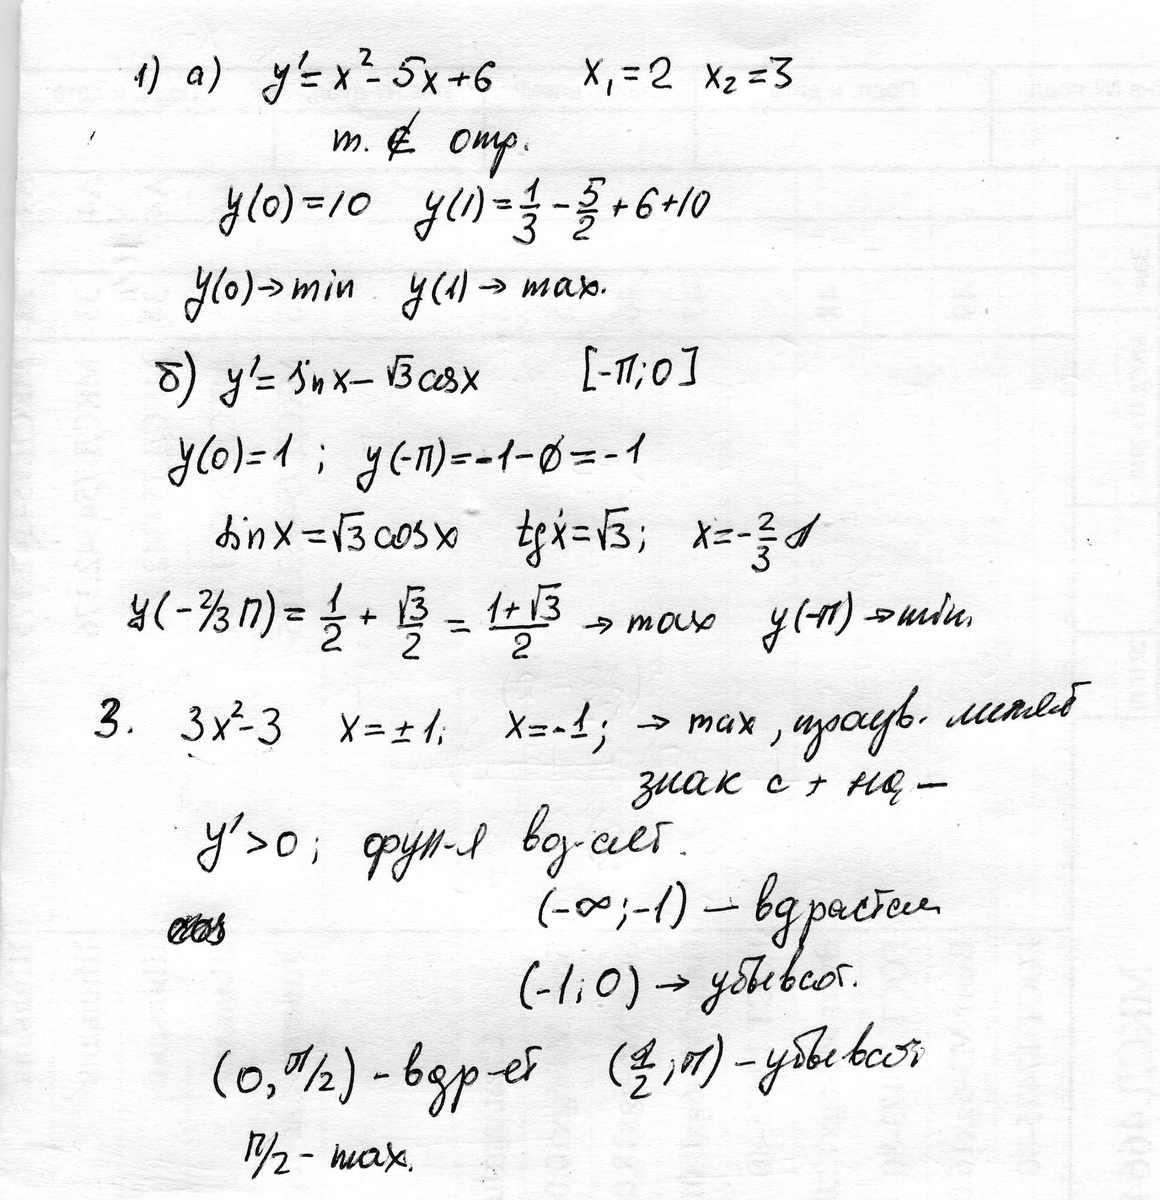 1) а) y' = x² - 5x + 6 x₁ = 2 x₂ = 3
т. ∉ отр.
y(0) = 10 y(1) = 1/3 - 5/2 + 6 + 10
y(0) → min y(1) → max.
б) y' = sin x - √3 cos x [-π; 0]
y(0) = 1 ; y(-π) = -1 - 0 = -1
sin x = √3 cos x tg x = √3; x = -2/3 π
y(-2/3 π) = 1/2 + √3/2 = (1+√3)/2 → max y(-π) → min.
3. 3x² - 3 x = ±1; x = -1; → max, меняет
знак с + на -
y' > 0;
(-∞; -1) - вздрастает
(-1; 0) → убывает.
(0, π/2) - вздр-ет (π/2; π) - убывает
π/2 - max.